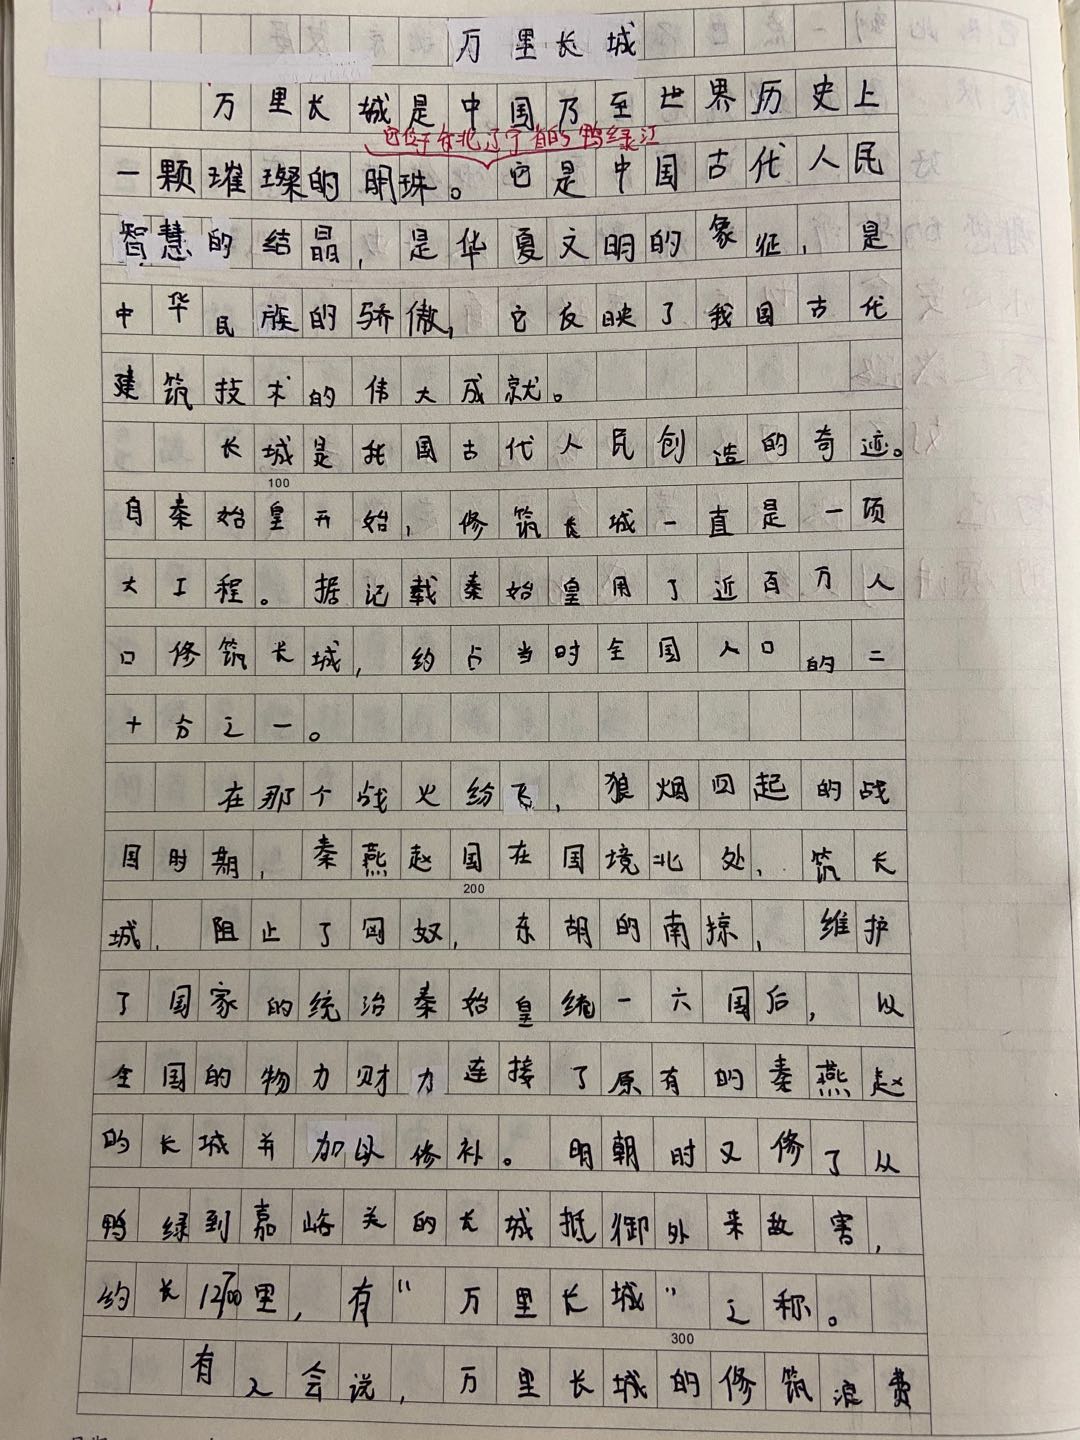 万里长城
万里长城是中国乃至世界历史上
它位于东北辽宁有的鸭绿江
一颗璀璨的明珠。它是中国古代人民
智慧的结晶，是华夏文明的象征，是
中华民族的骄傲，它反映了我国古代
建筑技术的伟大成就。
长城是我国古代人民创造的奇迹。
100
自秦始皇开始，修筑长城一直是一项
大工程。据记载秦始皇用了近百万人
口修筑长城，约占当时全国人口的二
十分之一。
在那个战火纷飞，狼烟四起的战
国时期，秦燕赵国在国境北处，筑长
200
城，阻止了匈奴，东胡的南掠，维护
了国家的统治秦始皇统一六国后，以
全国的物力财力连接了原有的秦燕赵
的长城并加以修补。明朝时又修了从
鸭绿到嘉峪关的长城抵御外来敌害，
约长12700里，有“万里长城”之称。
300
有人会说，万里长城的修筑浪费